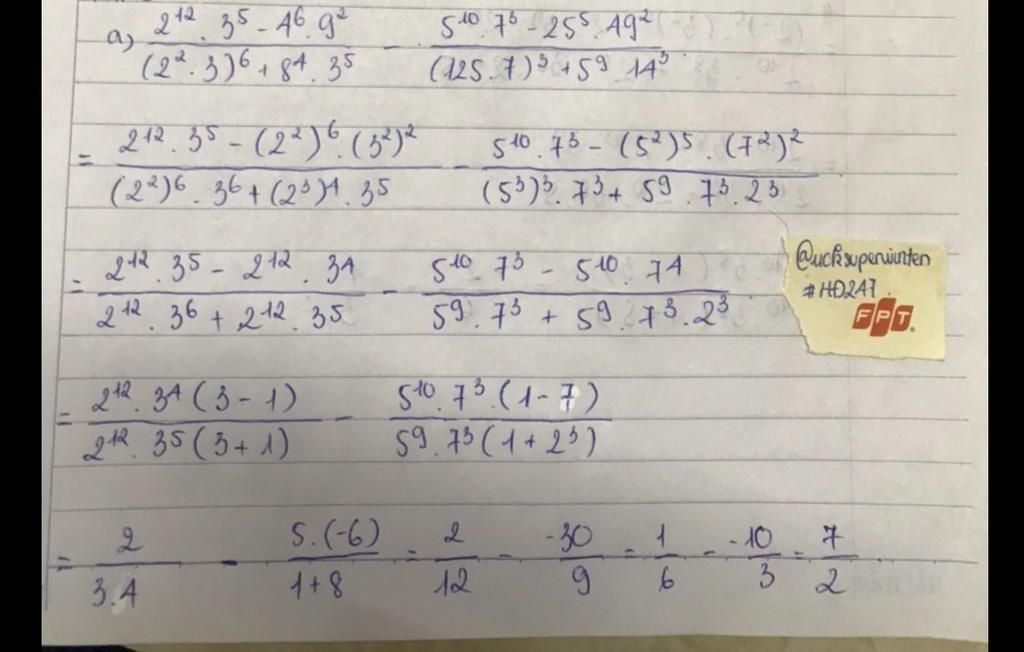 a, (2¹² . 3⁵ - 4⁶ . 9²)/((2² . 3)⁶ + 8⁴ . 3⁵) - (5¹⁰ . 7³ - 25⁵ . 49²)/((125 . 7)³ + 5⁹ . 14³)
= (2¹² . 3⁵ - (2²)⁶ . (3²)²)/((2²)⁶ . 3⁶ + (2³)⁴ . 3⁵) - (5¹⁰ . 7³ - (5²)⁵ . (7²)²)/((5³)³ . 7³ + 5⁹ . 7³ . 2³)
= (2¹² . 3⁵ - 2¹² . 3⁴)/(2¹² . 3⁶ + 2¹² . 3⁵) - (5¹⁰ . 7³ - 5¹⁰ . 7⁴)/(5⁹ . 7³ + 5⁹ . 7³ . 2³)
@ucksuperviunten
#HĐ247
FPT
= (2¹² . 3⁴ (3 - 1))/(2¹² . 3⁵ (3 + 1)) - (5¹⁰ . 7³ . (1 - 7))/(5⁹ . 7³ (1 + 2³))
= 2/(3.4) - (5.(-6))/(1+8) = 2/12 - (-30)/9 = 1/6 - (-10)/3 = 7/2